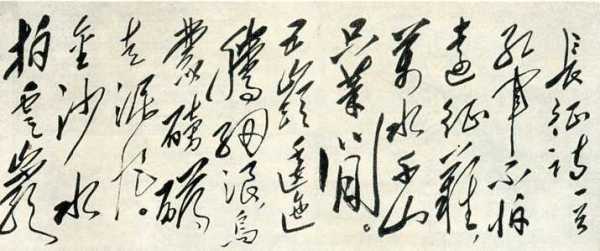 長征詩一首
紅軍不怕
遠征難，
萬水千山
只等閒。
五嶺逶迤
騰細浪，烏
蒙磅礴
走泥丸。
金沙水
拍雲崖